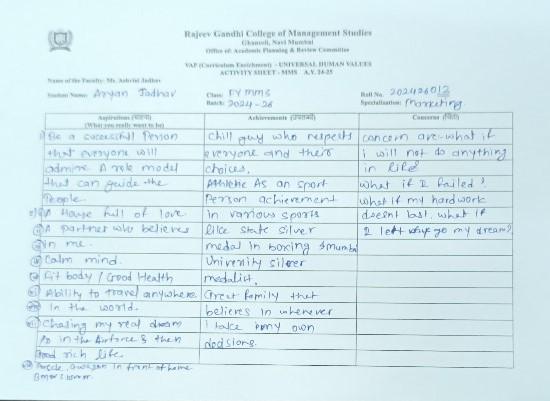 Rajeev Gandhi College of Management Studies
Ghansoli, Navi Mumbai
Office of: Academic Planning & Review Committee
VAP (Curriculum Enrichment) - UNIVERSAL HUMAN VALUES
ACTIVITY SHEET - MMS A.Y. 24-25
Name of the Faculty: Ms. Ashvini Jadhav
Student Name: Aryan Jadhav Class: FY MMS Roll No. 202426013
Batch: 2024-26 Specialization: Marketing
Aspirations Achievements Concerns
(What you really want to be)
Be a successful Person
that everyone will
admire A role model
that can guide the
People.
A House full of love
A partner who believes
in me.
Calm mind.
Fit body / Good Health
Ability to travel anywhere
In the world.
Chasing my real dream
in the Airforce & then
Good rich life.
in front of home
Chill guy who respects
everyone and their
choices.
Athletic As an sport
Person achievement
in various sports
like state silver
medal in boxing & mumbai
University silver
medalist.
Great family that
believes in whenever
I take my own
decisions.
concern are-what if
i will not do anything
in life?
what if I failed?
what if my hardwork
doesnt last. what if
I left my dream?